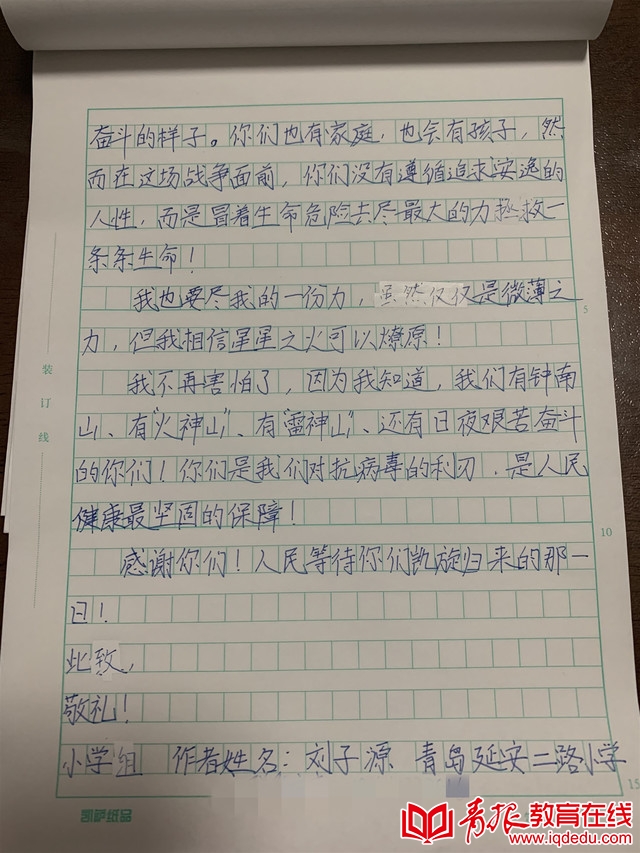 奋斗的样子。你们也有家庭，也会有孩子，然
而在这场战争面前，你们没有遵循追求安逸的
人性，而是冒着生命危险去尽最大的力拯救一
条条生命！
我也要尽我的一份力，虽然仅仅是微薄之
力，但我相信星星之火可以燎原！
5
我不再害怕了，因为我知道，我们有钟南
山、有“火神山”、有“雷神山”、还有日夜艰苦奋斗
的你们！你们是我们对抗病毒的利刃，是人民
健康最坚固的保障！
10
感谢你们！人民等待你们凯旋归来的那一
日！
此致，
敬礼！
小学组 作者姓名：刘子源 青岛延安二路小学
15
装订线
凯萨纸品
青报教育在线
www.iqdedu.com